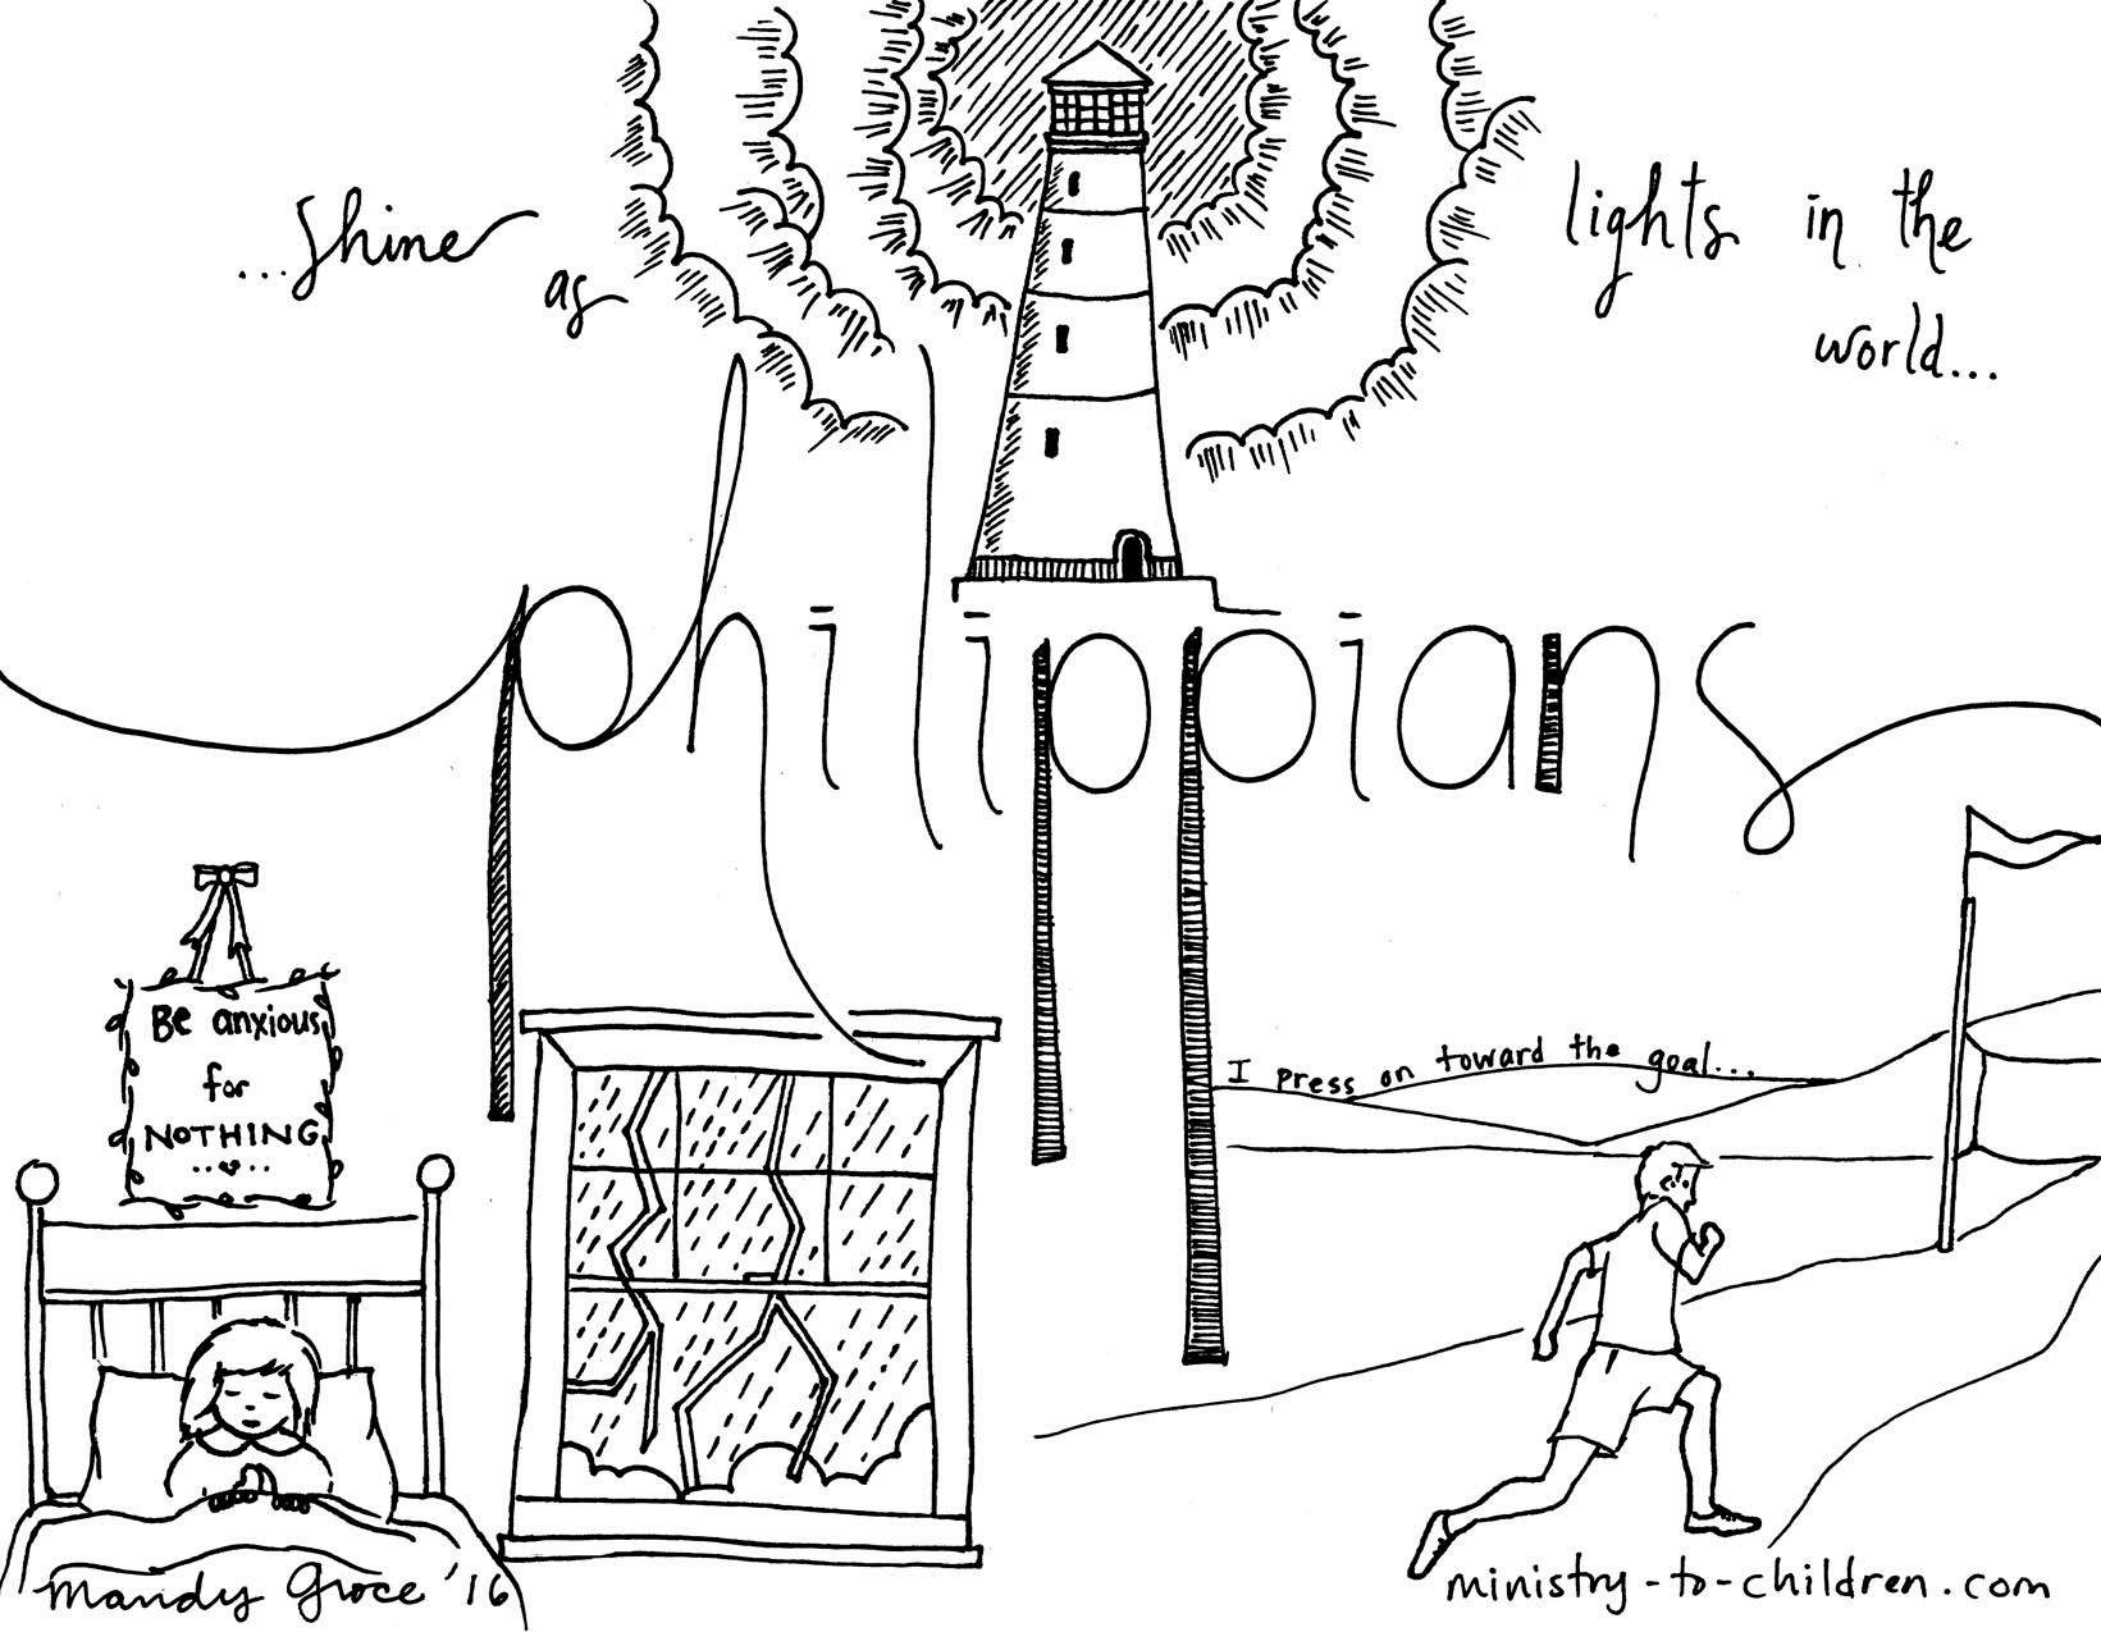 ...shine as
lights in the
world...
philippians
Be anxious
for
NOTHING
I press on toward the goal...
Mandy Groce '16
ministry-to-children.com